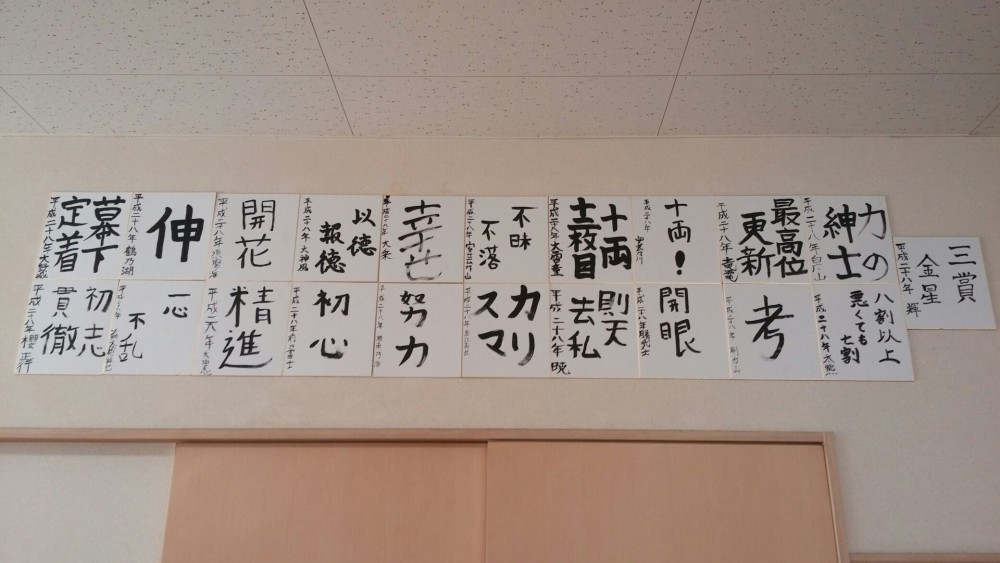 三賞
金星
平成二十八年 輝
力の
紳士
平成二十八年
最高位
更新
平成二十八年
十両！
平成二十八年
十両
十枚目
平成二十八年
不昧
不落
平成二十八年
幸せ
平成二十八年 大来
以徳
報徳
平成二十八年 大神風
開花
平成二十八年
伸
平成二十八年 鶴乃湖
幕下
定着
平成二十八年
八割以上
悪くても
七割
平成二十八年
考
平成二十八年
開眼
平成二十八年
則天
去私
平成二十八年 暁
カリ
スマ
平成二十八年
努力
平成二十八年
初心
平成二十八年
精進
平成二十八年
一心
不乱
初志
貫徹
平成二十八年